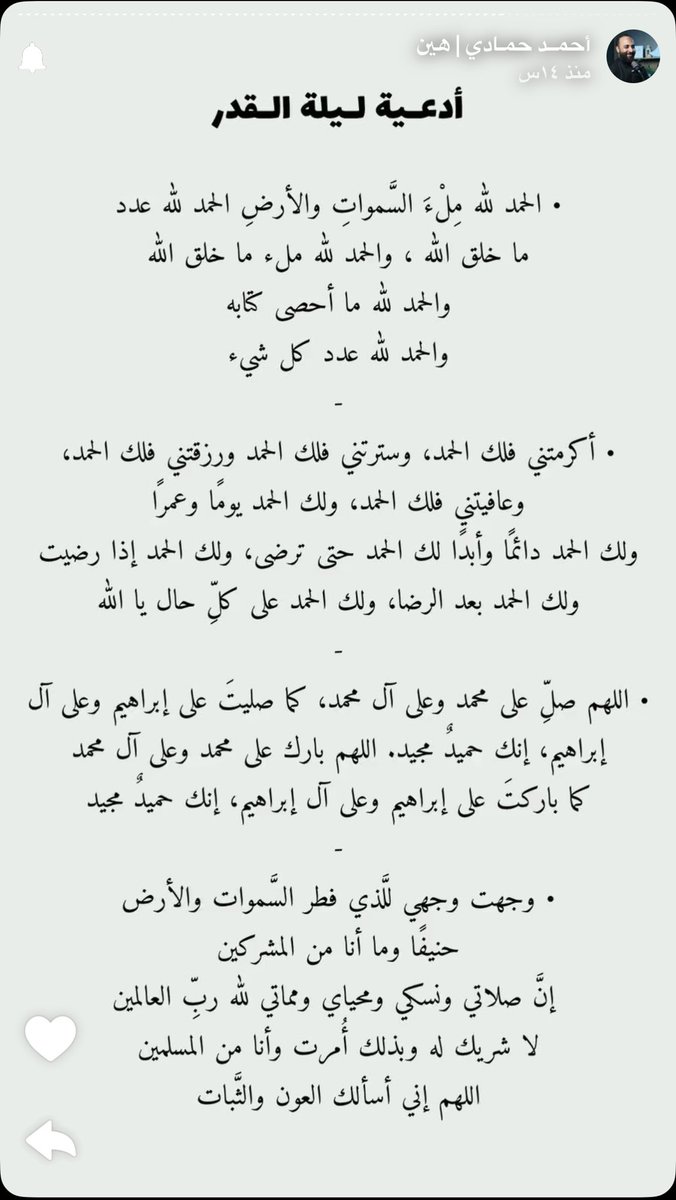 أحمـد حمـادي | هين
منذ ١٤س
أدعـية لـيلة الـقدر
• الحمد لله مِلْءَ السَّمواتِ والأرضِ الحمد لله عدد
ما خلق الله ، والحمد لله ملء ما خلق الله
والحمد لله ما أحصى كتابه
والحمد لله عدد كل شيء
-
• أكرمتني فلك الحمد، وسترتني فلك الحمد ورزقتني فلك الحمد،
وعافيتني فلك الحمد، ولك الحمد يومًا وعمرًا
ولك الحمد دائمًا وأبدًا لك الحمد حتى ترضى، ولك الحمد إذا رضيت
ولك الحمد بعد الرضا، ولك الحمد على كلِّ حال يا الله
-
• اللهم صلِّ على محمد وعلى آل محمد، كما صليتَ على إبراهيم وعلى آل
إبراهيم، إنك حميدٌ مجيد. اللهم بارك على محمد وعلى آل محمد
كما باركتَ على إبراهيم وعلى آل إبراهيم، إنك حميدٌ مجيد
-
• وجهت وجهي للَّذي فطر السَّموات والأرض
حنيفًا وما أنا من المشركين
إنَّ صلاتي ونسكي ومحياي ومماتي لله ربِّ العالمين
لا شريك له وبذلك أُمرت وأنا من المسلمين
اللهم إني أسألك العون والثَّبات